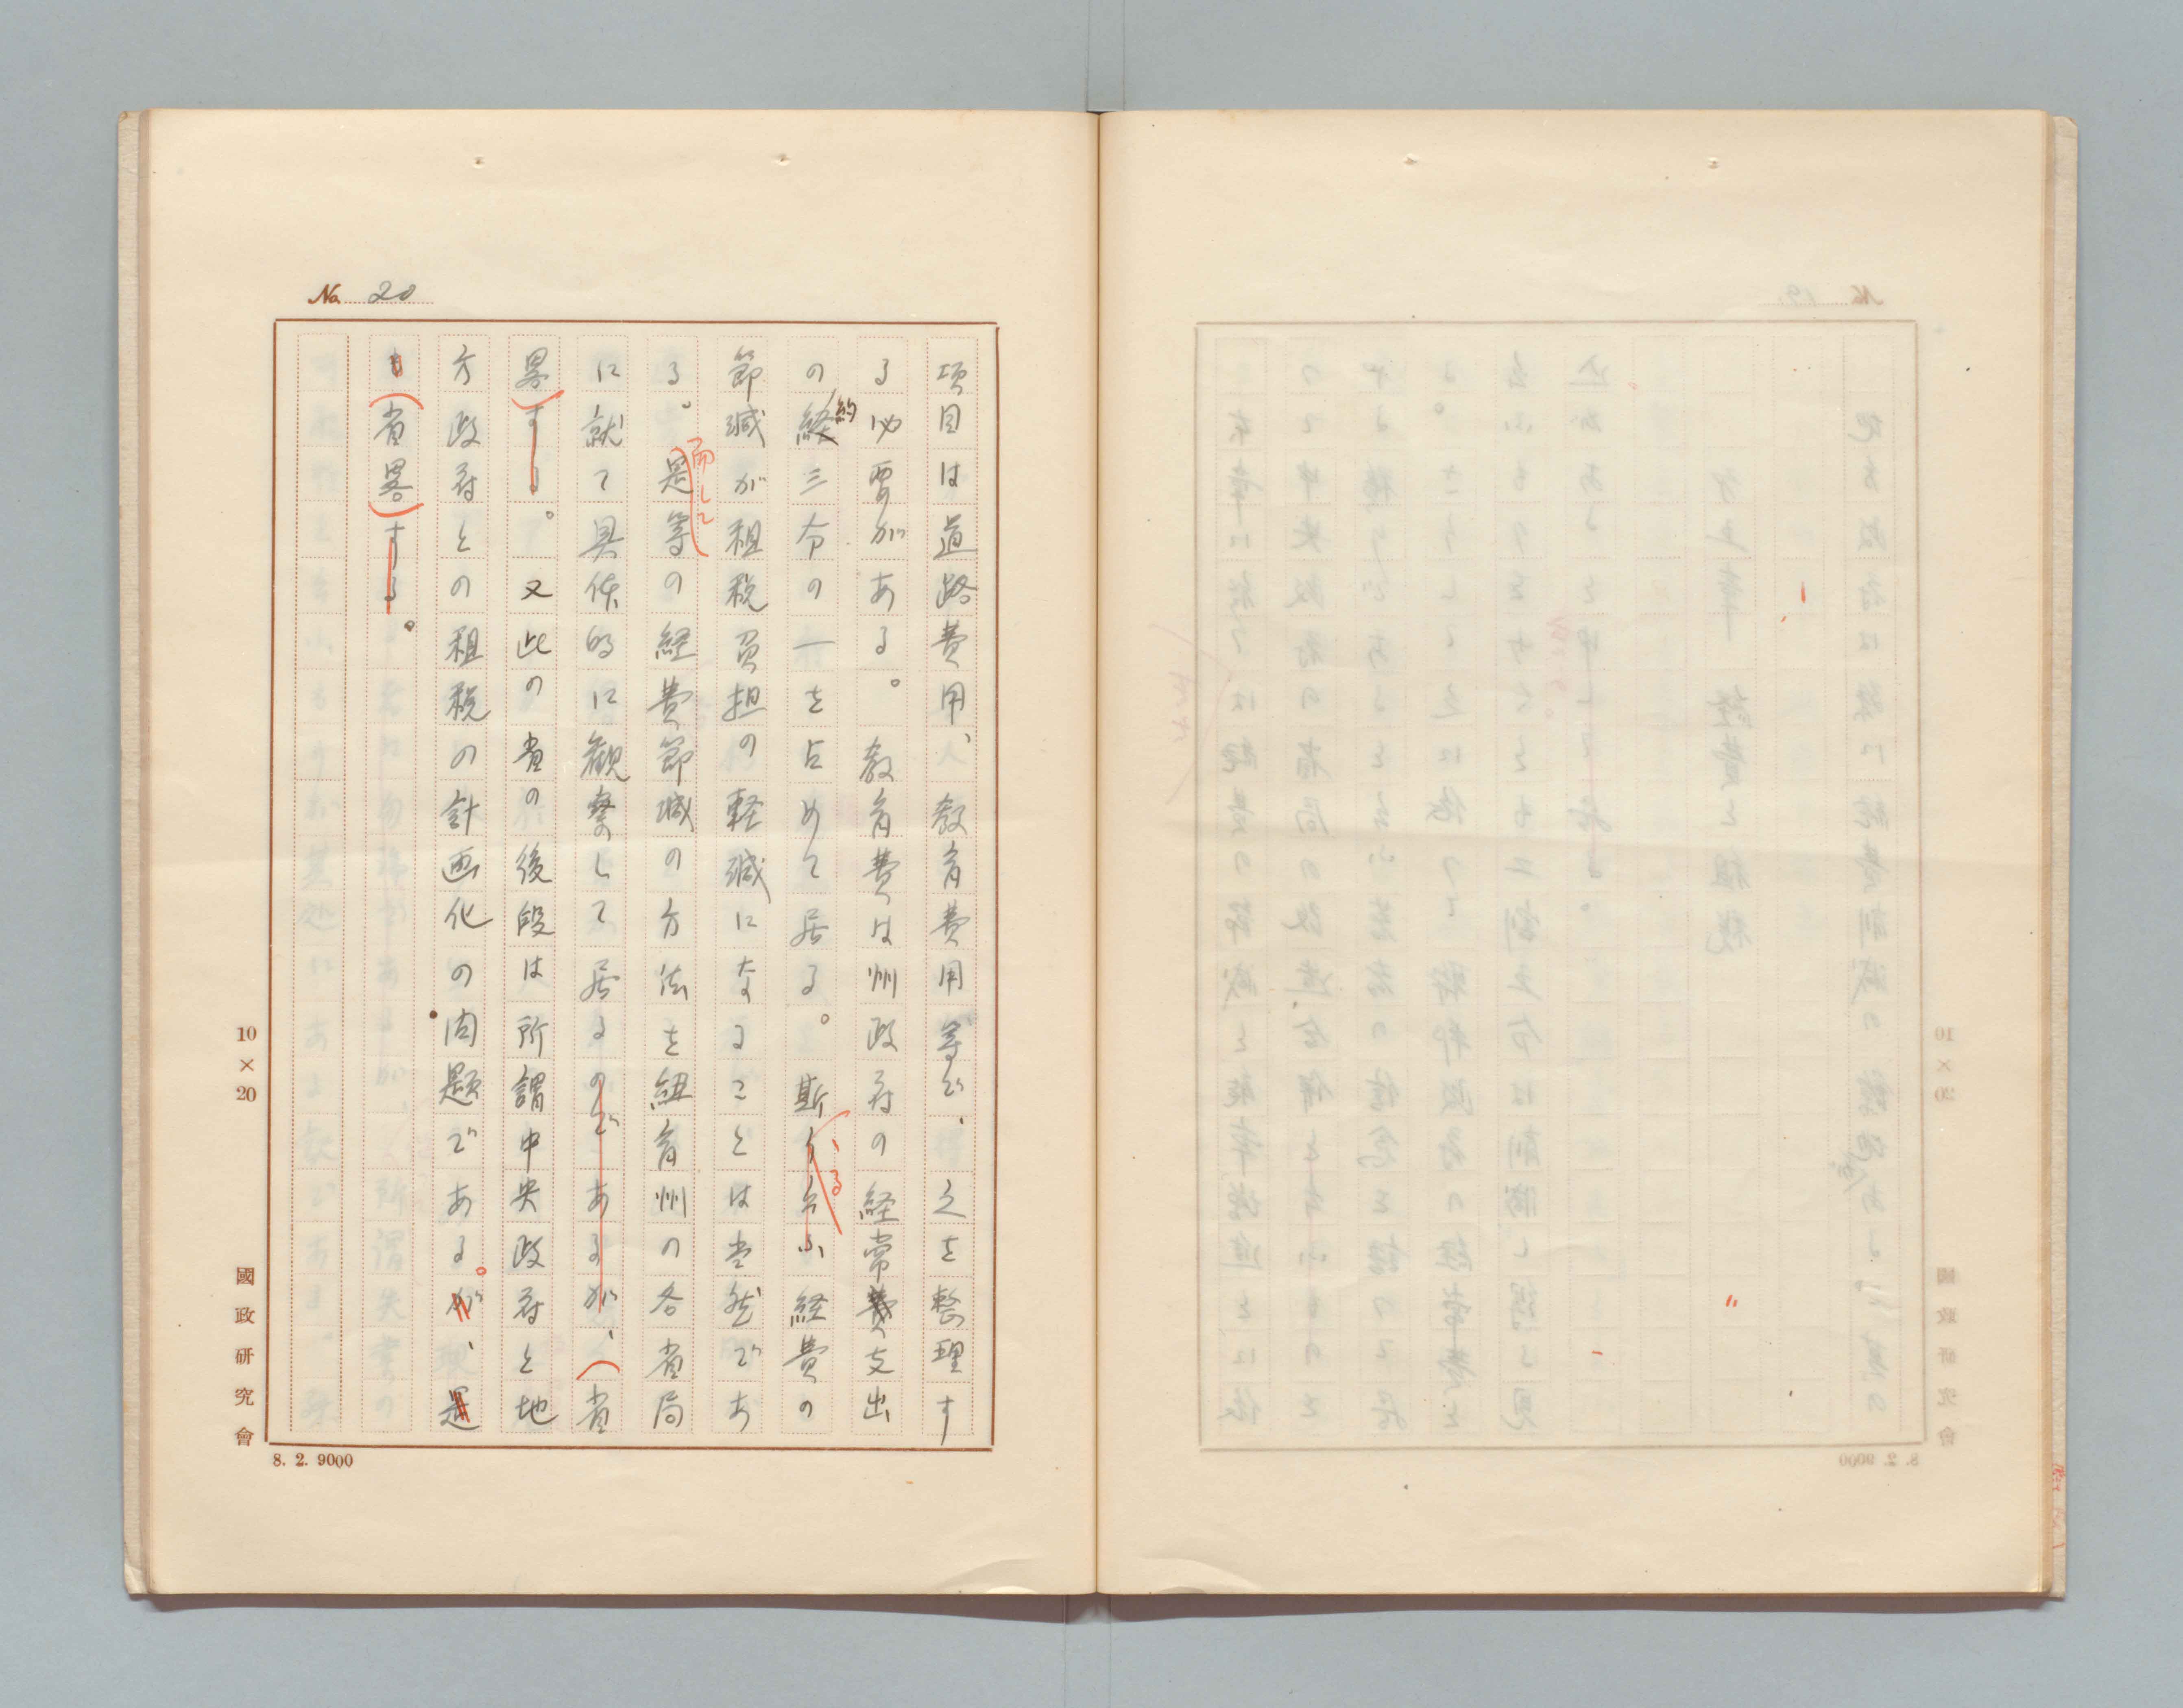 No. 20
項目は道路費用、教育費用等で、之を整理す
る必要がある。教育費は州政府の経常費支出
の経約三分の一を占めて居る。斯かる云ふ経費の
節減が租税負担の軽減になることは当然であ
る。而して是等の経費節減の方法を紐育州の各省局
に就て具体的に観察して居るのであるが、(省
畧)する。又此の書の後段は所謂中央政府と地
方政府との租税の計画化の問題である。が、還
も(省畧)する。
10×20
國政研究會
8. 2. 9000